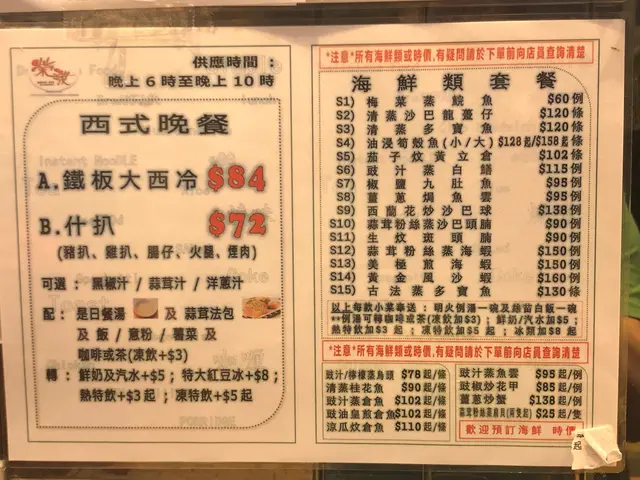 供應時間：
晚上6時至晚上10時
西式晚餐
A.鐵板大西冷 $84
B.什扒 $72
(豬扒、雞扒、腸仔、火腿、煙肉)
可選：黑椒汁 / 蒜茸汁 / 洋蔥汁
配：是日餐湯 及 蒜茸法包
及 飯 / 意粉 / 薯菜 及
咖啡或茶(凍飲+$3)
轉：鮮奶及汽水+$5；特大紅豆冰+$8；
熱特飲+$3起；凍特飲+$5起
*注意*所有海鮮類或時價,有疑問請於下單前向店員查詢清楚
海鮮類套餐
S1) 梅菜蒸鯇魚 $60例
S2) 清蒸沙巴龍躉仔 $120條
S3) 清蒸多寶魚 $120條
S4) 油浸筍殼魚(小/大) $128起/$158起 條
S5) 茄子炆黃立倉 $102條
S6) 豉汁蒸白鱔 $115例
S7) 椒鹽九肚魚 $95例
S8) 薑蔥焗魚雲 $95例
S9) 西蘭花炒沙巴球 $138例
S10) 蒜茸粉絲蒸沙巴頭腩 $90例
S11) 生炆斑頭腩 $90例
S12) 蒜茸粉絲蒸海蝦 $150例
S13) 美極煎海蝦 $150例
S14) 黃金風沙蝦 $160例
S15) 古法蒸多寶魚 $130條
以上每款小菜奉送：明火例湯一碗及絲苗白飯一碗
++例湯可轉咖啡或茶(凍飲加$3)；鮮奶/汽水加$5；
熱特飲加$3起；凍特飲加$5起；冰類加$8起
*注意*所有海鮮類或時價,有疑問請於下單前向店員查詢清楚
豉汁/檸檬蒸烏頭 $78起/條
清蒸桂花魚 $90起/條
豉汁蒸倉魚 $102起/條
豉油皇煎倉魚 $102起/條
涼瓜炆倉魚 $110起/條
豉汁蒸魚雲 $95起/例
豉椒炒花甲 $85起/例
薑蔥炒蟹 $138起/例
蒜茸粉絲蒸扇貝(兩隻起) $25起/隻
歡迎預訂海鮮 時價